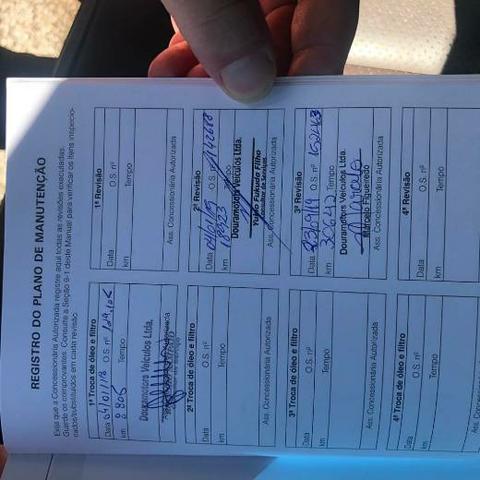 REGISTRO DO PLANO DE MANUTENÇÃO
Exija que a Concessionária Autorizada registre aqui todas as revisões executadas.
Guarde os comprovantes. Consulte a Seção 9-1 deste Manual para verificar os itens inspecio-
nados/substituídos em cada revisão.
1ª Troca de óleo e filtro
Data 04/01/18 O.S. nº
km 8.805 Tempo
Douramotors Veículos Ltda.
1ª Revisão
Data O.S. nº
km Tempo
Ass. Concessionária Autorizada
2ª Troca de óleo e filtro
Data O.S. nº
km Tempo
Ass. Concessionária Autorizada
2ª Revisão
Data O.S. nº
km Tempo
Douramotors Veículos Ltda.
Yukio Fukuda Filho
Consultor de Serviços
Ass. Concessionária Autorizada
3ª Troca de óleo e filtro
Data O.S. nº
km Tempo
Ass. Concessionária Autorizada
3ª Revisão
Data O.S. nº
km 30642 Tempo
Douramotors Veículos Ltda.
Marcelo Figueredo
Ass. Concessionária Autorizada
4ª Troca de óleo e filtro
Data O.S. nº
km Tempo
4ª Revisão
Data O.S. nº
km Tempo